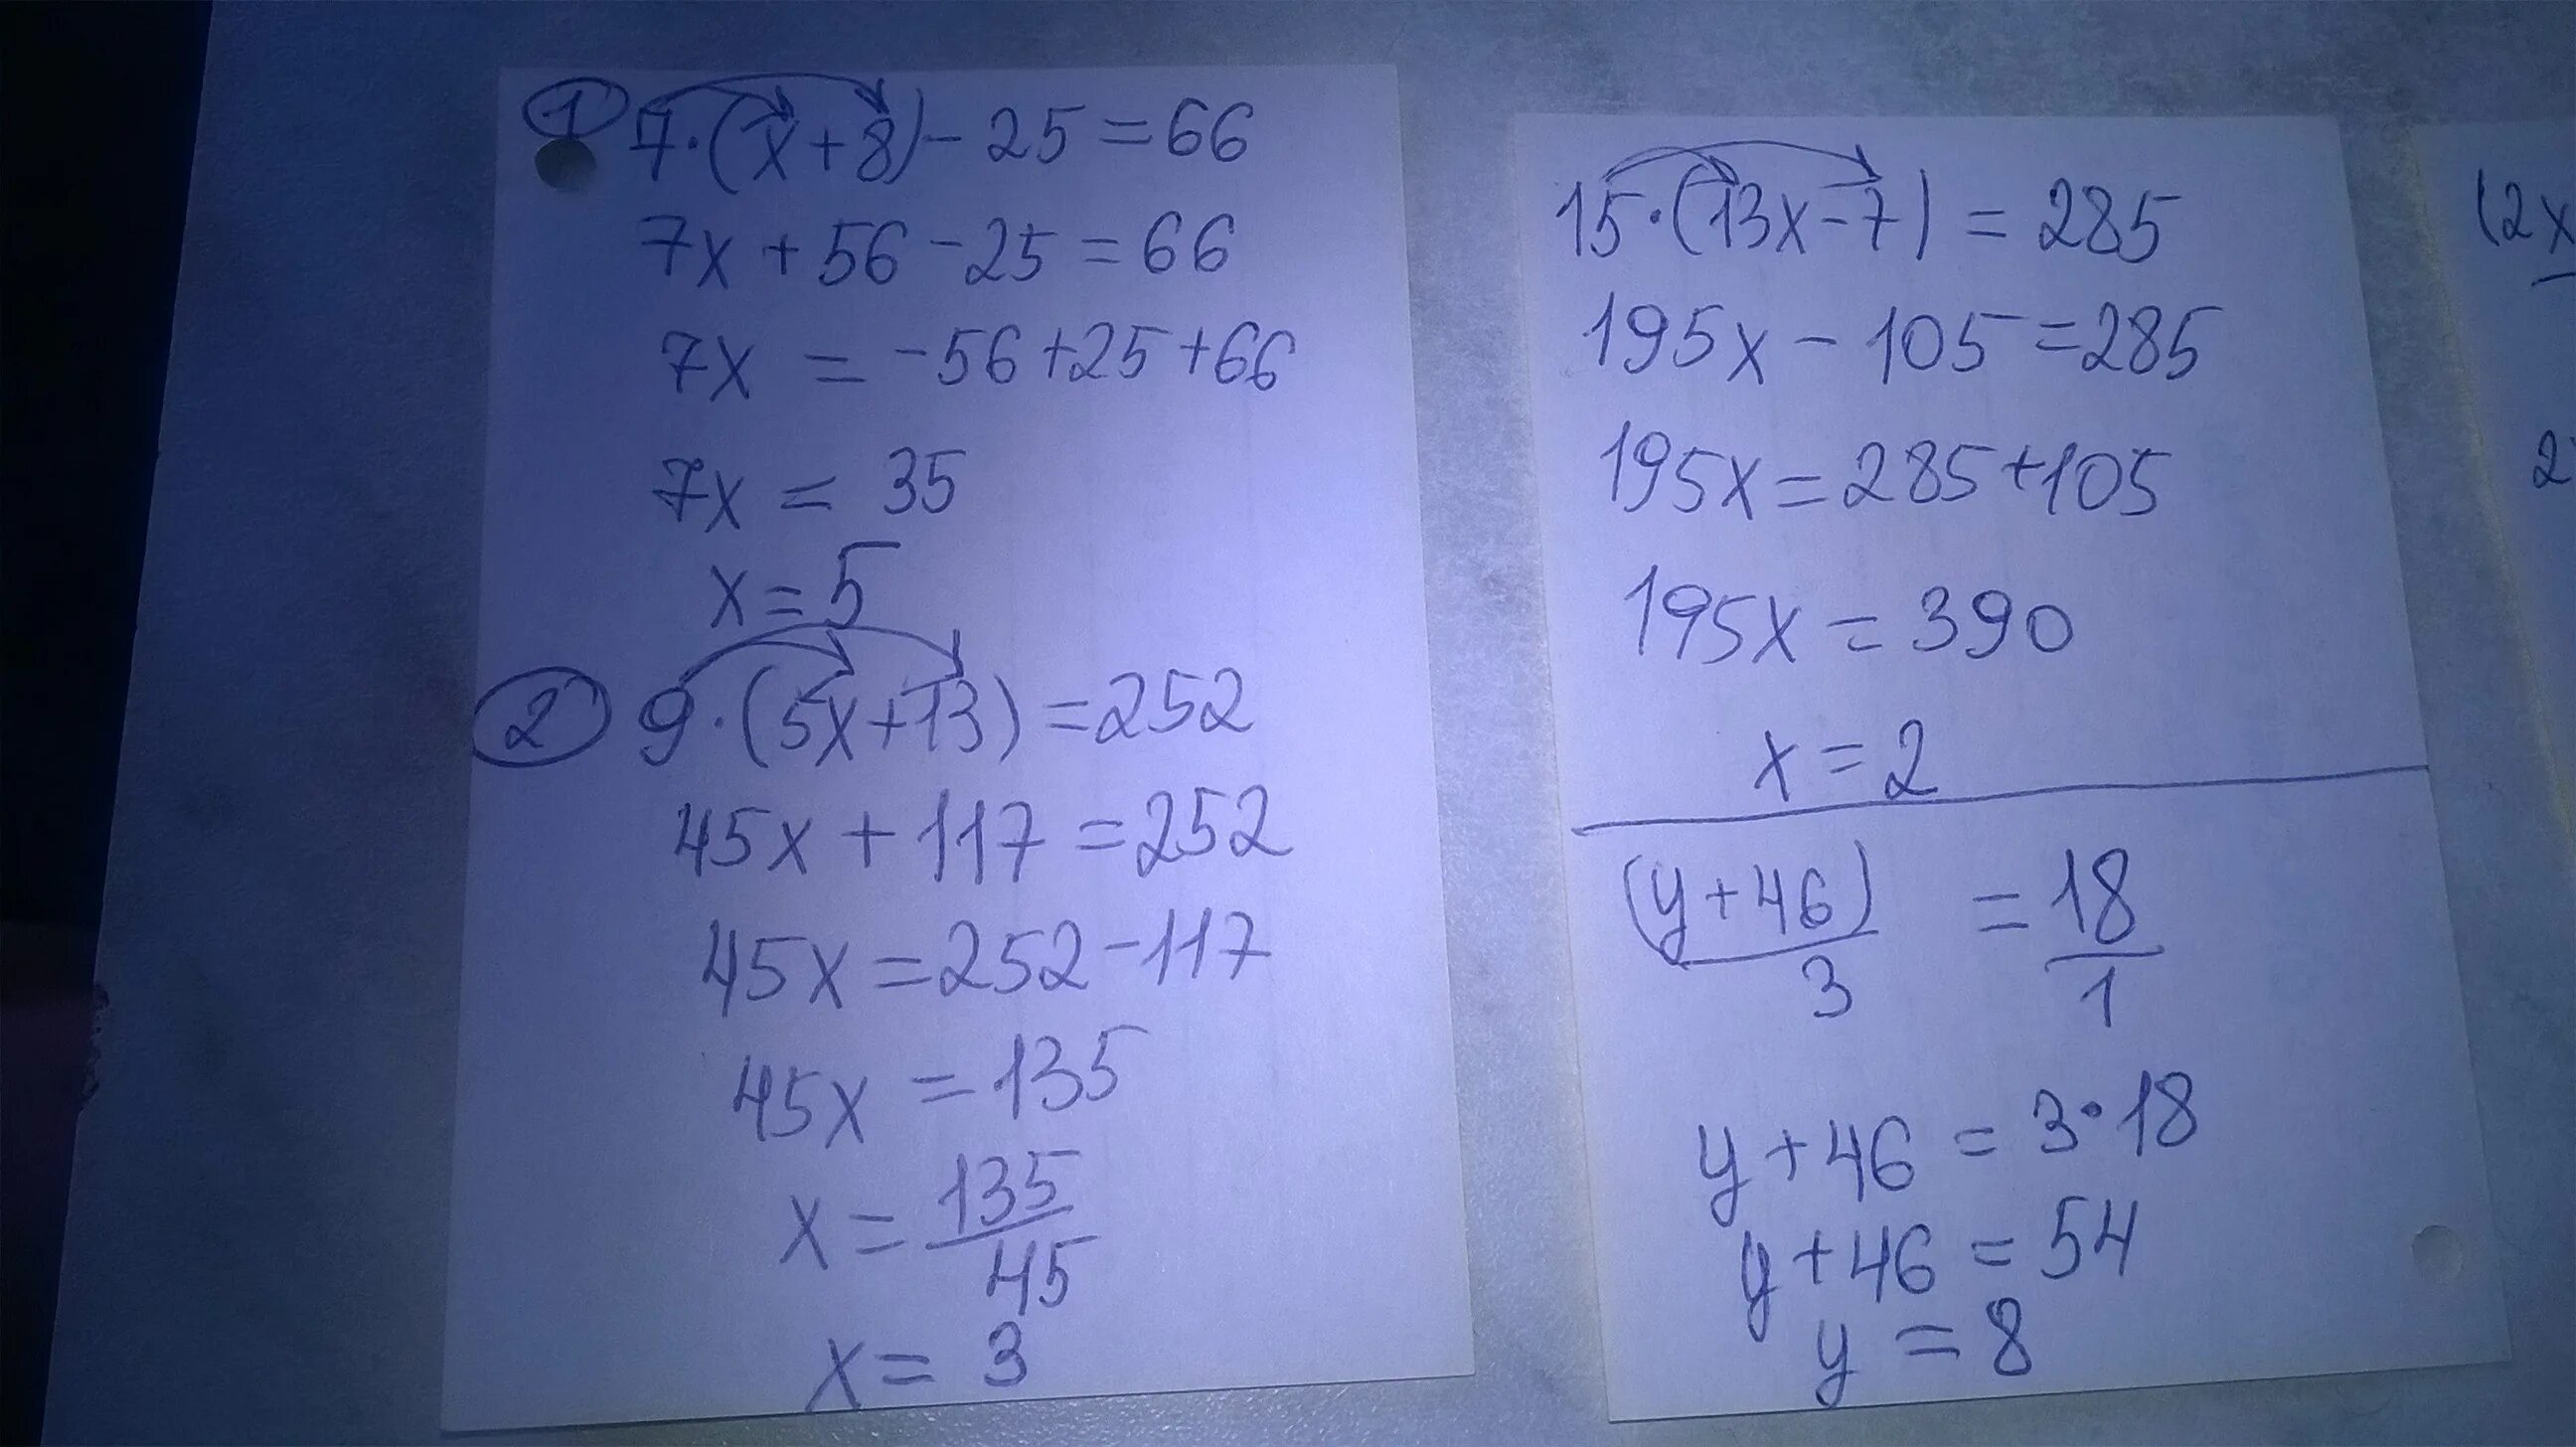 1 7·(x+8)-25=66
7x+56-25=66
7x = -56+25+66
7x = 35
x=5
2 9·(5x+13)=252
45x+117=252
45x=252-117
45x=135
x=135/45
x=3
15·(13x-7)=285
195x-105=285
195x=285+105
195x=390
x=2
(y+46)/3 = 18/1
y+46=3·18
y+46=54
y=8
(2x